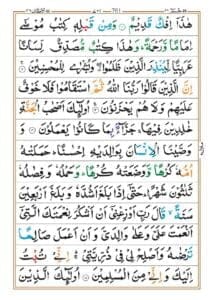 هٰذَآ اِفْكٌ قَدِيْمٌ ۝ وَمِنْ قَبْلِهٖ كِتٰبُ مُوْسٰٓى
اِمَامًا وَّرَحْمَةً ؕ وَهٰذَا كِتٰبٌ مُّصَدِّقٌ لِّسَانًا
عَرَبِيًّا لِّيُنْذِرَ الَّذِيْنَ ظَلَمُوْا ۖ وَبُشْرٰى لِلْمُحْسِنِيْنَ ۝
اِنَّ الَّذِيْنَ قَالُوْا رَبُّنَا اللّٰهُ ثُمَّ اسْتَقَامُوْا فَلَا خَوْفٌ
عَلَيْهِمْ وَلَا هُمْ يَحْزَنُوْنَ ۝ اُولٰٓئِكَ اَصْحٰبُ الْجَنَّةِ
خٰلِدِيْنَ فِيْهَا ۚ جَزَآءًۢ بِمَا كَانُوْا يَعْمَلُوْنَ ۝ وَ
وَصَّيْنَا الْاِنْسَانَ بِوَالِدَيْهِ اِحْسٰنًا ؕ حَمَلَتْهُ
اُمُّهٗ كُرْهًا وَّوَضَعَتْهُ كُرْهًا ؕ وَحَمْلُهٗ وَفِصٰلُهٗ
ثَلٰثُوْنَ شَهْرًا ؕ حَتّٰٓى اِذَا بَلَغَ اَشُدَّهٗ وَبَلَغَ اَرْبَعِيْنَ
سَنَةً ۙ قَالَ رَبِّ اَوْزِعْنِيْٓ اَنْ اَشْكُرَ نِعْمَتَكَ الَّتِيْٓ
اَنْعَمْتَ عَلَيَّ وَعَلٰى وَالِدَيَّ وَاَنْ اَعْمَلَ صَالِحًا
تَرْضٰىهُ وَاَصْلِحْ لِيْ فِيْ ذُرِّيَّتِيْ ۚ اِنِّيْ تُبْتُ
اِلَيْكَ وَاِنِّيْ مِنَ الْمُسْلِمِيْنَ ۝ اُولٰٓئِكَ الَّذِيْنَ